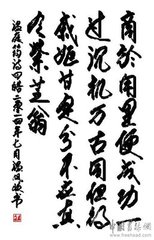 商於甪里便成功一
寸沉机万古同但得
戚姬甘定分不应真
有紫芝翁
温庭筠诗四皓二〇一四年七月温书